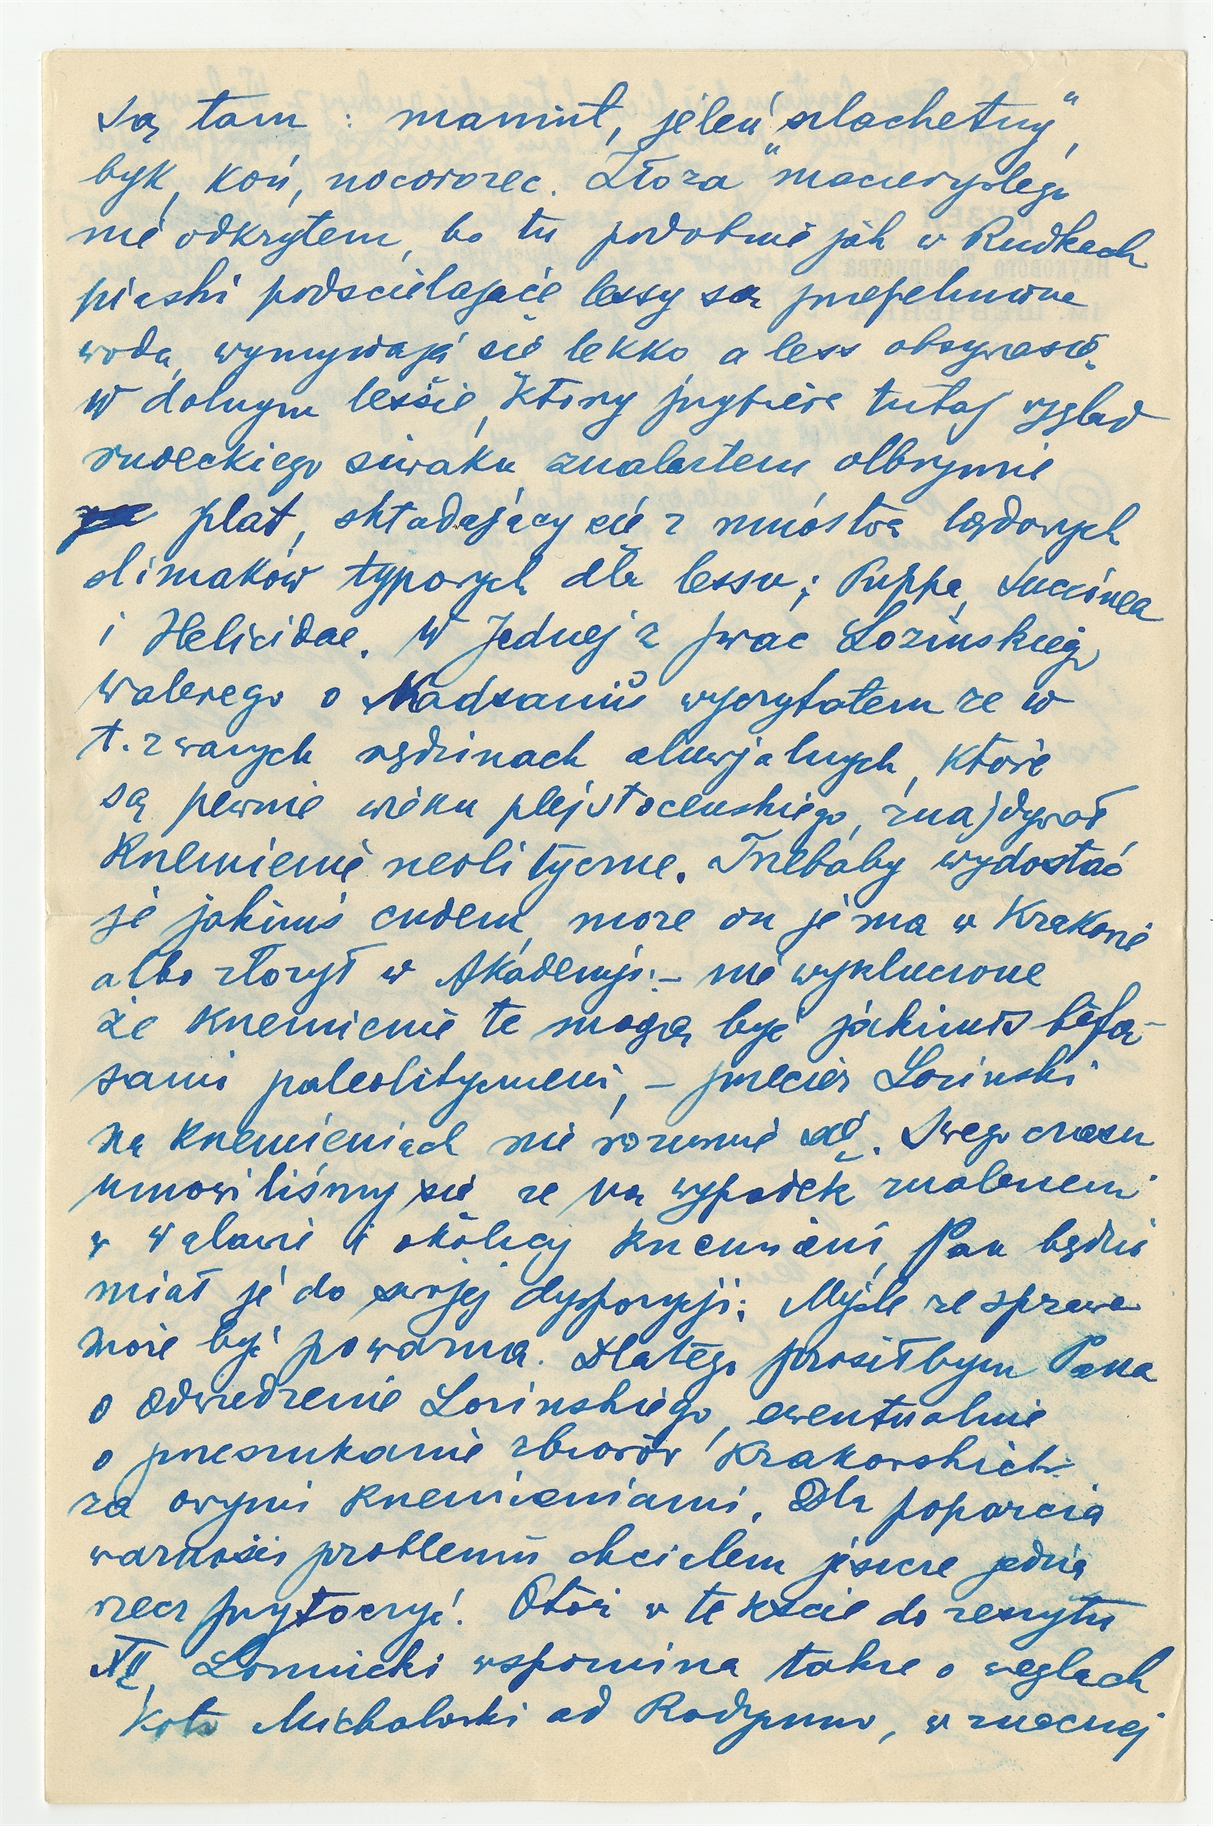 są tam : mamut, jeleń „szlachetny”,
byk, koń, nosorożec. Złoża "macierzystego
nie odkryłem, bo tu podobnie jak w Rudkach
piaski podścielające lessy są przepełnione
wodą, wymywają się lekko, a less obrywa się.
W dolnym lessie, który przybiera tutaj wygląd
rudeckiego siwaku znalazłem olbrzymie
płat, składający się z mnóstwa lądowych
ślimaków typowych dla lessu; Puppa, Succinea
i Helicidae. W jednej z prac Łozińskiego
Walerego o Nadsaniu wyczytałem że w
t. zwanych rędzinach aluwjalnych, które
są pewnie wieku plejstoceńskiego, znajdywał
krzemienie neolityczne. Trzebaby wydostać
je jakimś cudem, może on je ma w Krakowie
albo złożył w Akademji. – nie wykluczone
że krzemienie te mogą być jakimiś bifa-
sami paleolitycznemi, – przecież Łoziński
na krzemieniach nie rozumie się. Swego czasu
umowiliśmy się że na wypadek znalezienia
w Walawie i okolicy krzemieni, Pan będzie
miał je do swojej dyspozycji; Myślę że sprawa
może być poważna. Dlatego prosiłbym Pana
o odwiedzenie Łozińskiego, ewentualnie
o przeszukanie zbiorów Krakowskich
za owymi krzemieniami. Dla poparcia
ważności problemu chciałem jeszcze jedną
rzecz przytoczyć! Otóż w tekście do zeszytu
XII, Łomnicki wspomina także o węglach
koło Michałówki ad Radymno, w znacznej